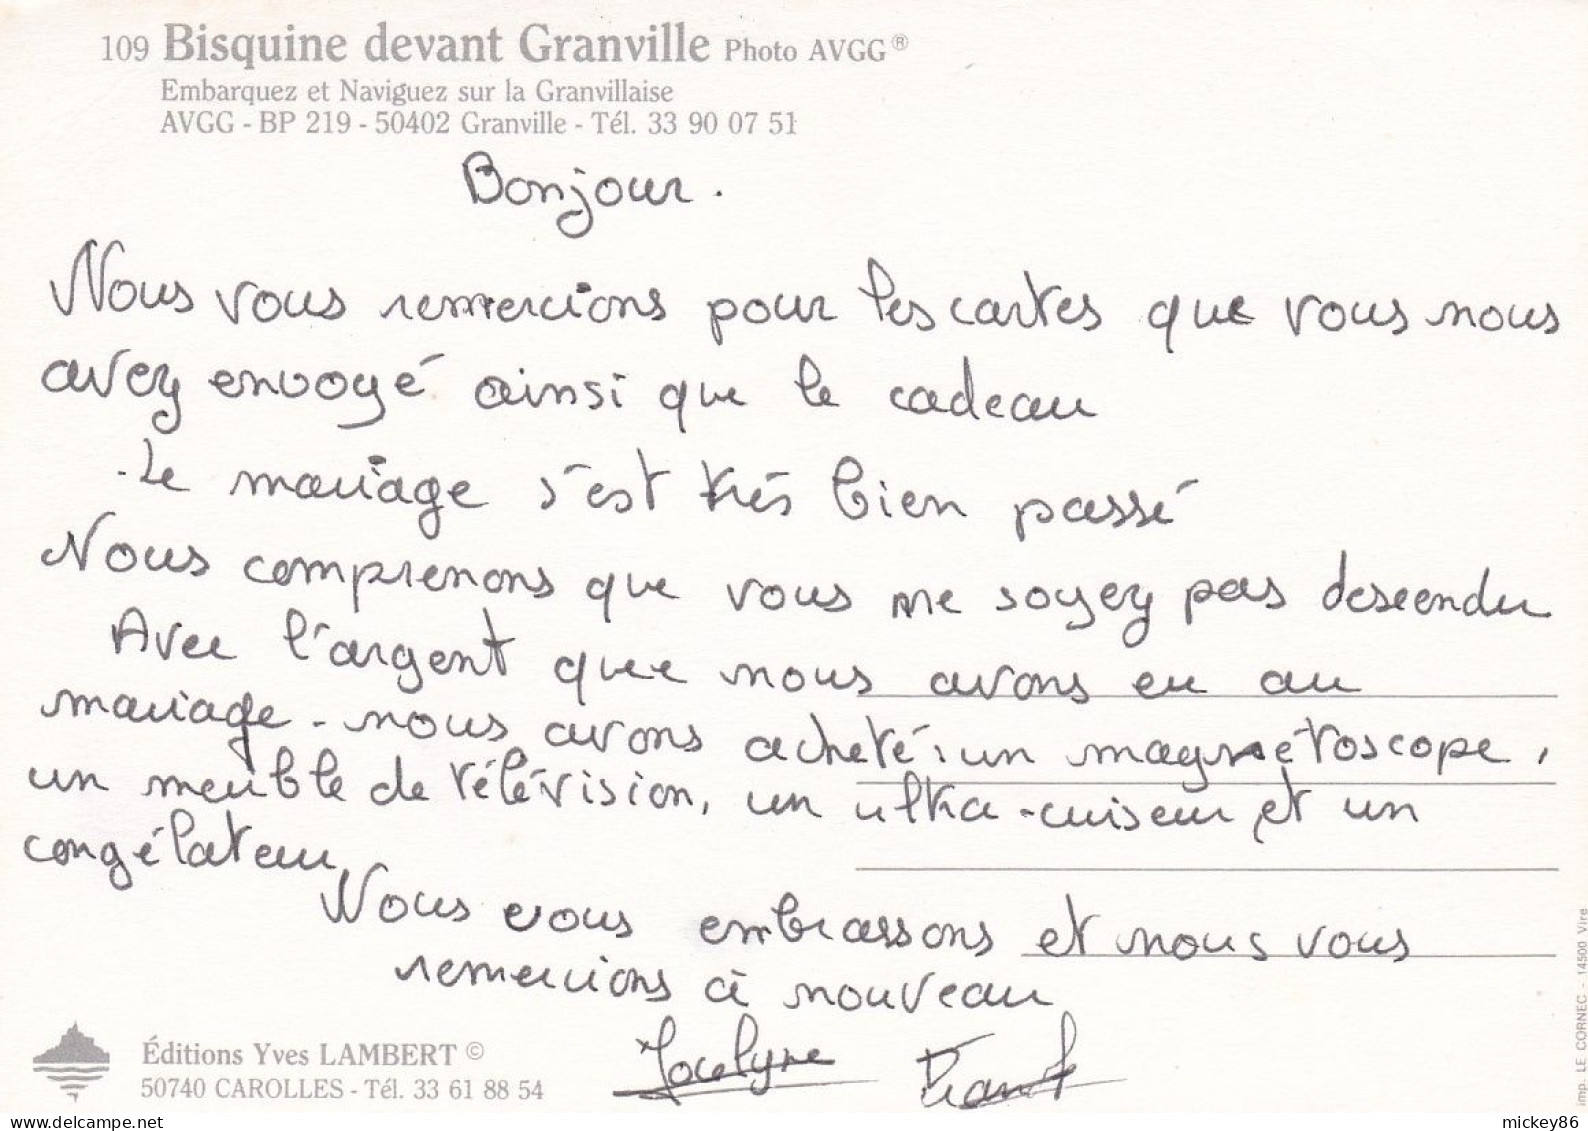 109 Bisquine devant Granville Photo AVGG®
Embarquez et Naviguez sur la Granvillaise
AVGG - BP 219 - 50402 Granville - Tél. 33 90 07 51
Bonjour.
Nous vous remercions pour les cartes que vous nous
avez envoyé ainsi que le cadeau
- Le mariage s'est très bien passé
Nous comprenons que vous ne soyez pas descendu
Avec l'argent que nous avons eu au
mariage - nous avons acheté : un magnétoscope,
un meuble de télévision, un ultra-cuiseur et un
congélateur
Nous vous embrassons et nous vous
remercions à nouveau
Jocelyne
Éditions Yves LAMBERT ©
50740 CAROLLES - Tél. 33 61 88 54
imp. LE CORNEC - 14500 Vire
mickey86